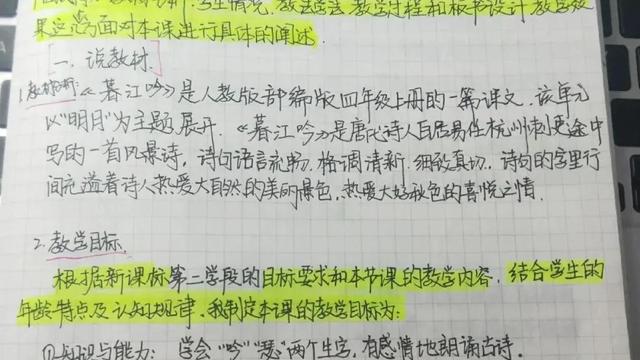 学生情况、教法学法、教学过程和板书设计、教学效
果这几方面对本课进行具体的阐述.
一、说教材.
1.教材分析《暮江吟》是人教版部编版四年级上册的一篇课文.该单元
以"明月"为主题展开.《暮江吟》是唐代诗人白居易任杭州刺史途中
写的一首风景诗,诗句语言流畅.格调清新.细致真切.诗句的字里行
间充溢着诗人热爱大自然的美丽景色,热爱大好秋色的喜悦之情.
2.教学目标.
根据新课标第二学段的目标要求和本节课的教学内容,结合学生的
年龄特点及认知规律,我制定本课的教学目标为:
①知识与能力:学会"吟""瑟"两个生字,有感情地朗诵古诗.